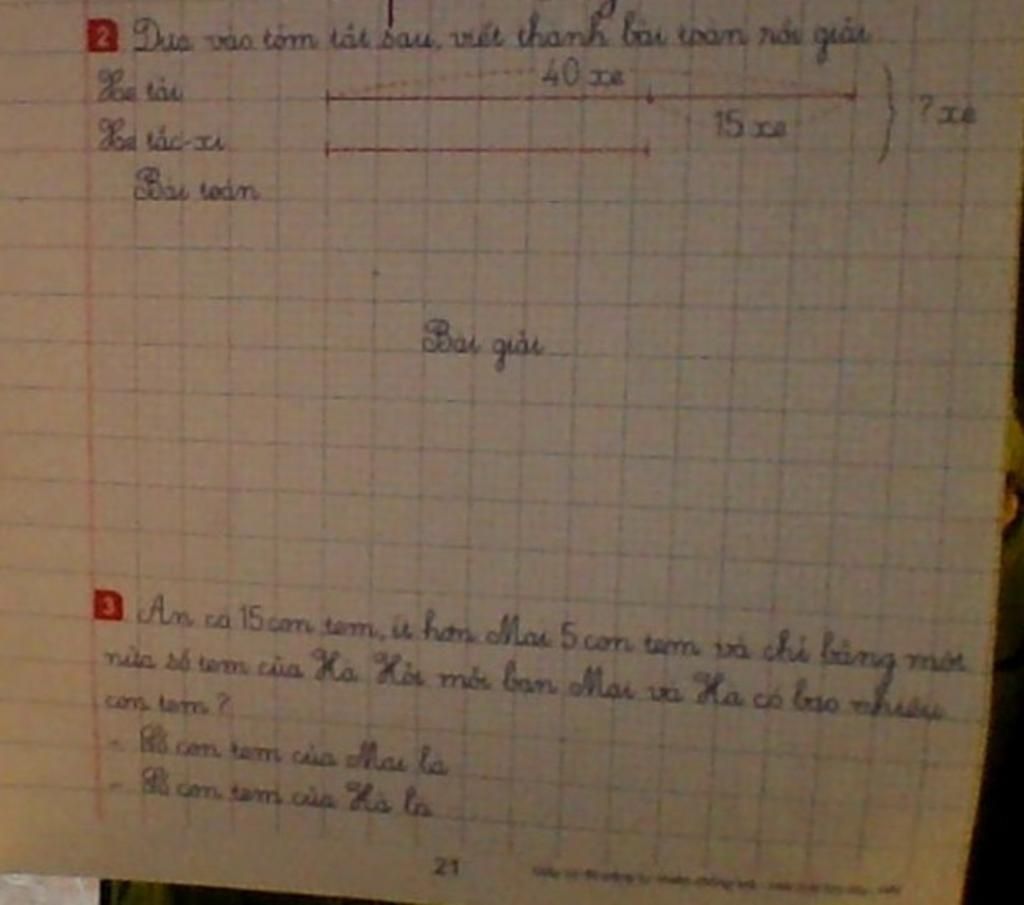 2 Dựa vào tóm tắt sau, viết thành bài toán rồi giải
40 xe
Xe tải
? xe
15 xe
Xe tắc-xi
Bài toán
Bài giải
3 An có 15 con tem, ít hơn Mai 5 con tem và chỉ bằng một
nửa số tem của Hà Hỏi mỗi bạn Mai và Hà có bao nhiêu
con tem?
- Số con tem của Mai là
- Số con tem của Hà là
21